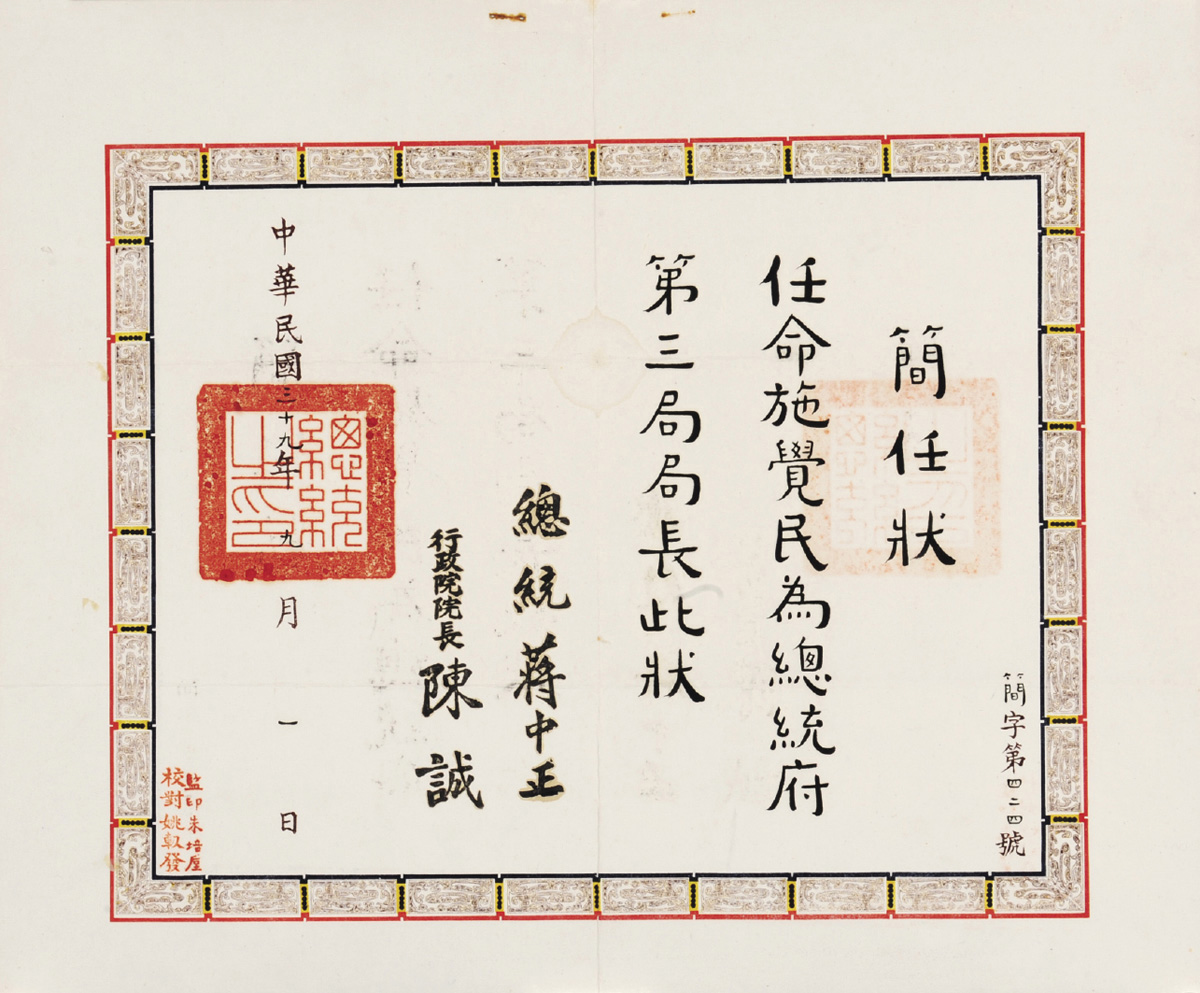 簡字第四二四號
簡任狀
任命施覺民為總統府
第三局局長此狀
總統蔣中正
行政院院長陳誠
中華民國三十九年九月一日
總統之印
監印朱培垕
校對姚馭發